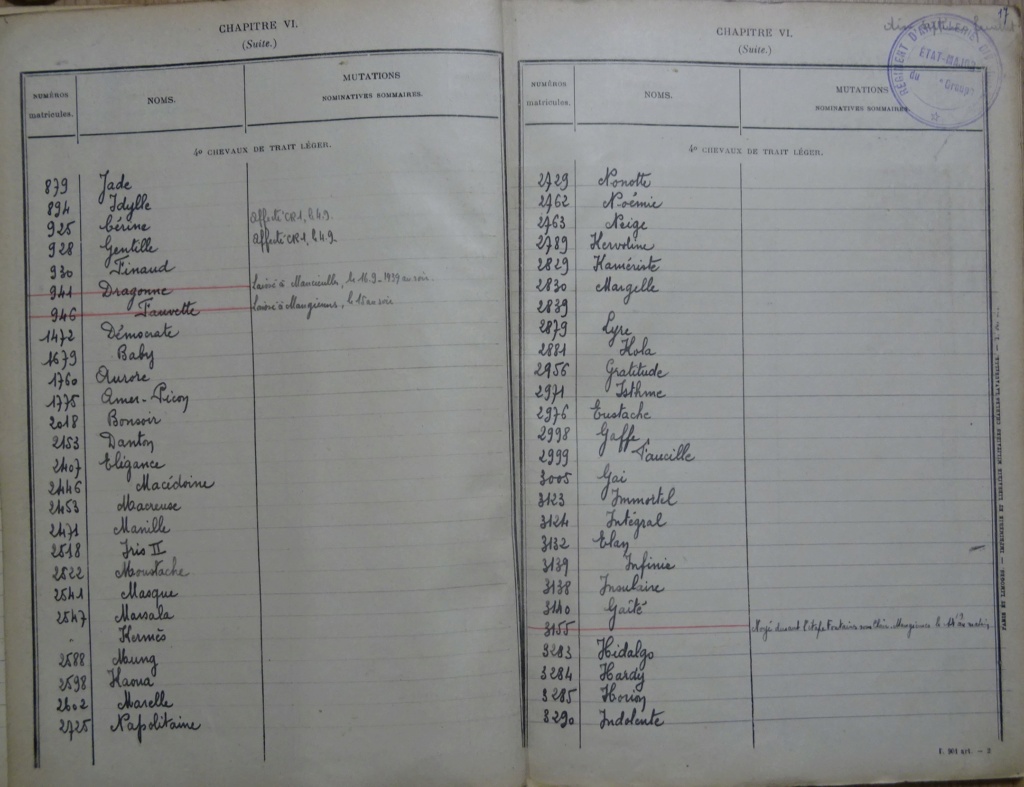 CHAPITRE VI.
(Suite.)
NUMÉROS matricules.
NOMS.
MUTATIONS
NOMINATIVES SOMMAIRES.
4º CHEVAUX DE TRAIT LÉGER.
879 Jade
894 Idylle
925 Cérine Affecté CR1, le 4.9.
928 Gentille Affecté CR1, le 4.9.
930 Finaud
941 Dragonne Laissé à Mancieulles, le 16.9.1939 au soir.
946 Fauvette Laissé à le 16 au soir
1472 Démocrate
1679 Baby
1760 Aurore
1775 Amer-Picon
2018 Bonsoir
2153 Danton
2407 Elégance
2446 Macédoine
2453 Macreuse
2471 Manille
2518 Iris II
2522 Moustache
2541 Masque
2547 Marsala
" Hermès
2588 Mung
2598 Haoua
2602 Marelle
2725 Napolitaine
17
CHAPITRE VI.
(Suite.)
RÉGIMENT D'ARTILLERIE
ETAT-MAJOR
du Groupe
NUMÉROS matricules.
NOMS.
MUTATIONS
NOMINATIVES SOMMAIRES.
4º CHEVAUX DE TRAIT LÉGER.
2729 Nonotte
2762 Noémie
2763 Neige
2789 Hervoline
2829 Kamériste
2830 Margelle
2839
2879 Lyre
2881 Kola
2956 Gratitude
2971 Isthme
2976 Eustache
2998 Gaffe
2999 Faucille
3005 Gai
3123 Immortel
3124 Intégral
3132 Elan
3139 Infinie
3138 Insulaire
3140 Gaîté
3155 durant l'étape le 14 au matin
3283 Hidalgo
3284 Hardy
3285 Horion
3290 Indolente